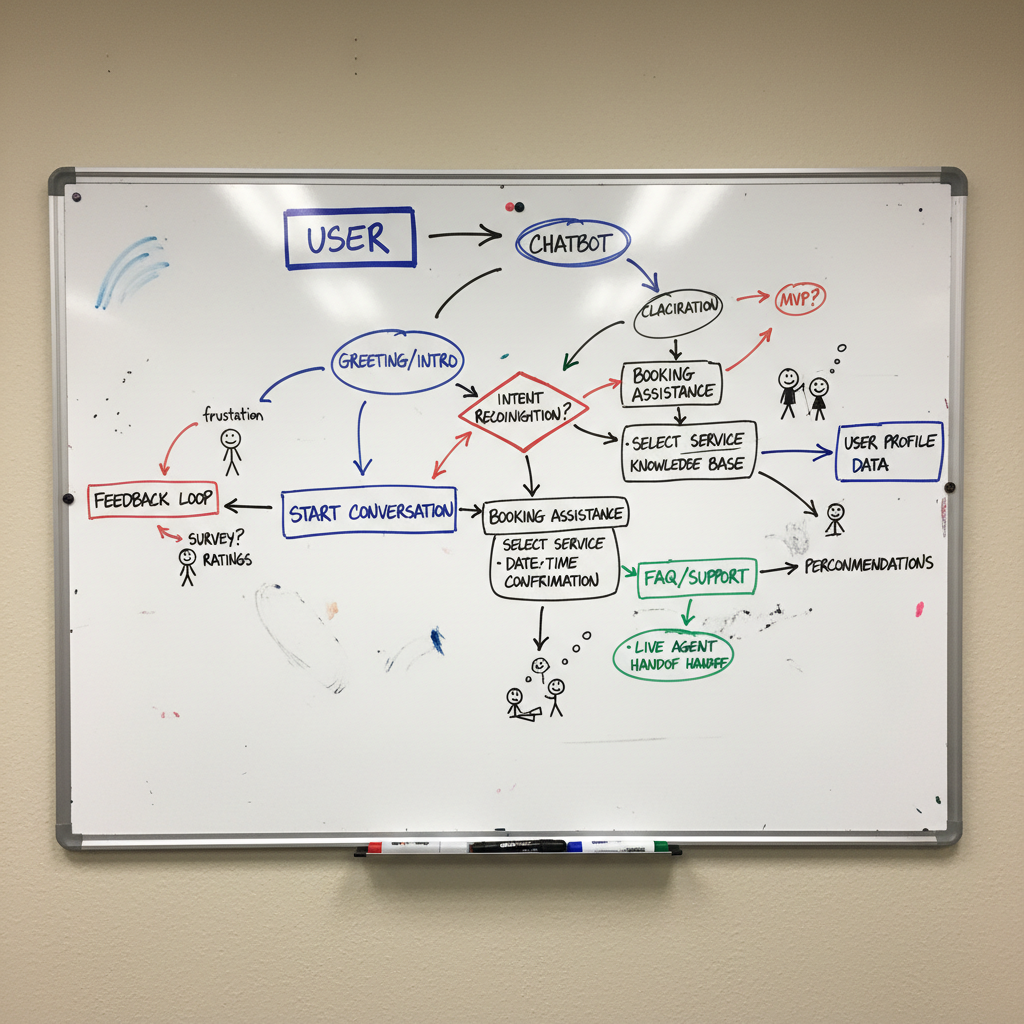 USER
CHATBOT
CLACIRATION
MVP?
GREETING/INTRO
BOOKING
ASSISTANCE
INTENT
RECOINIGITION?
frustation
• SELECT SERVICE
KNOWLEDGE BASE
USER PROFILE
DATA
FEEDBACK LOOP
START CONVERSATION
BOOKING ASSISTANCE
SURVEY?
RATINGS
SELECT SERVICE
• DATE/TIME
CONFRIMATION
FAQ/SUPPORT
PERCONMENDATIONS
• LIVE AGENT
HANDOF